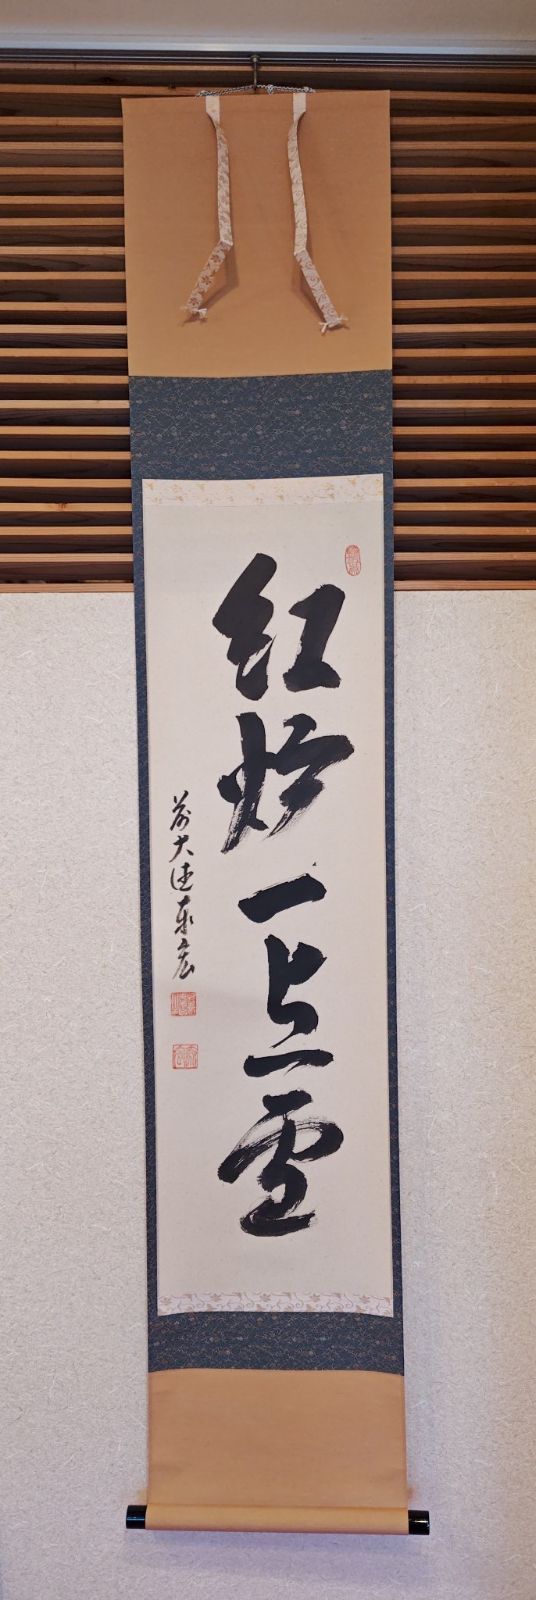 紅炉一点雪
前大徳東宏